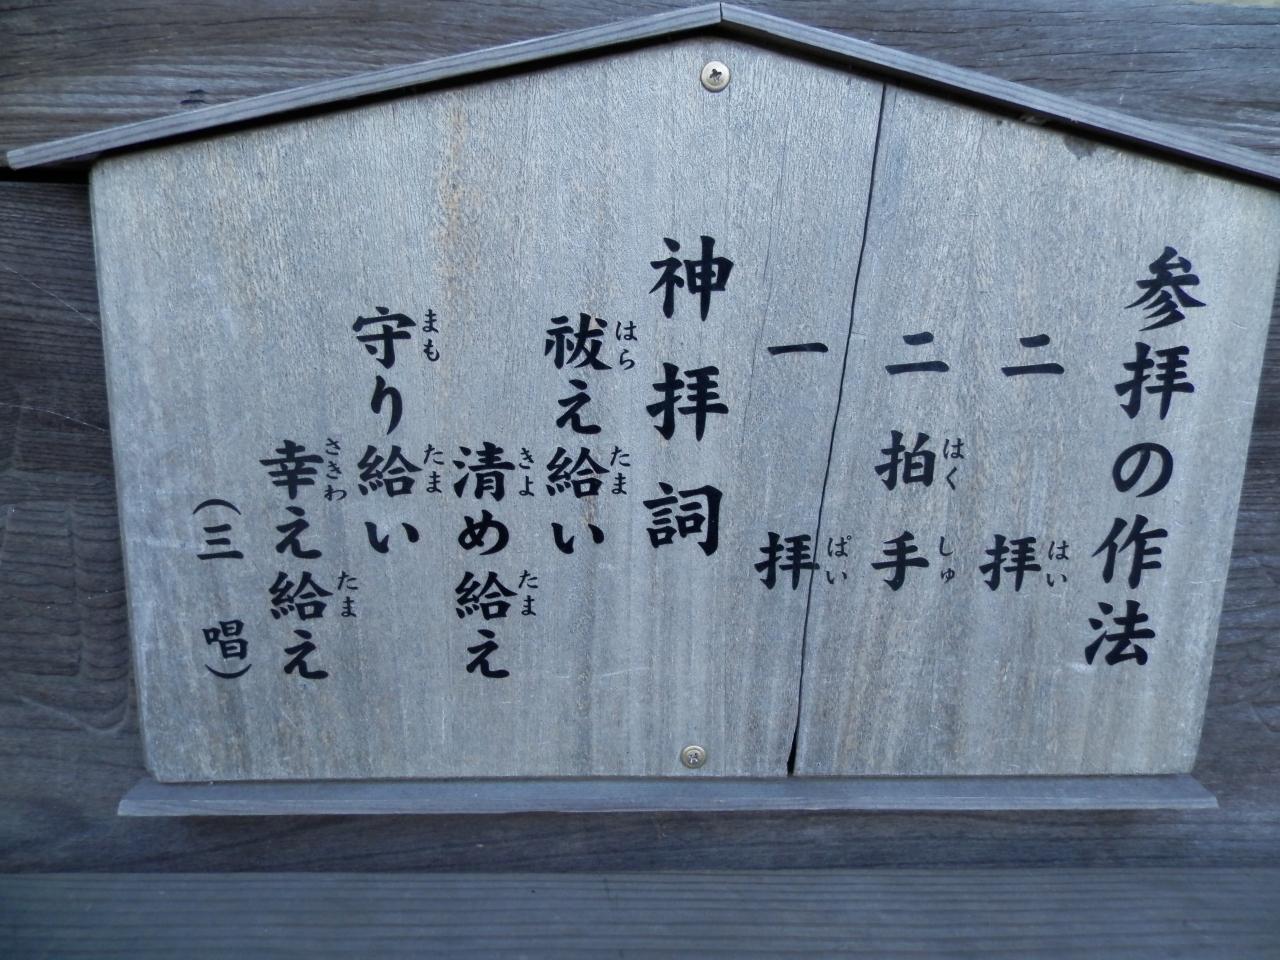 参拝の作法
二拝
はい
二拍手
はくしゅ
一拝
ぱい
神拝詞
祓え給い
はらたま
清め給え
きよたま
守り給い
まもたま
幸え給え
さきわたま
(三唱)